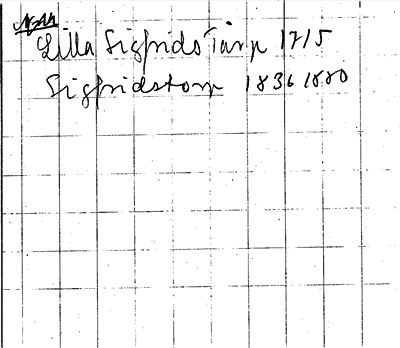 Lilla Sigfrids Tarp 1715
Sigfridstorp 1836 1880